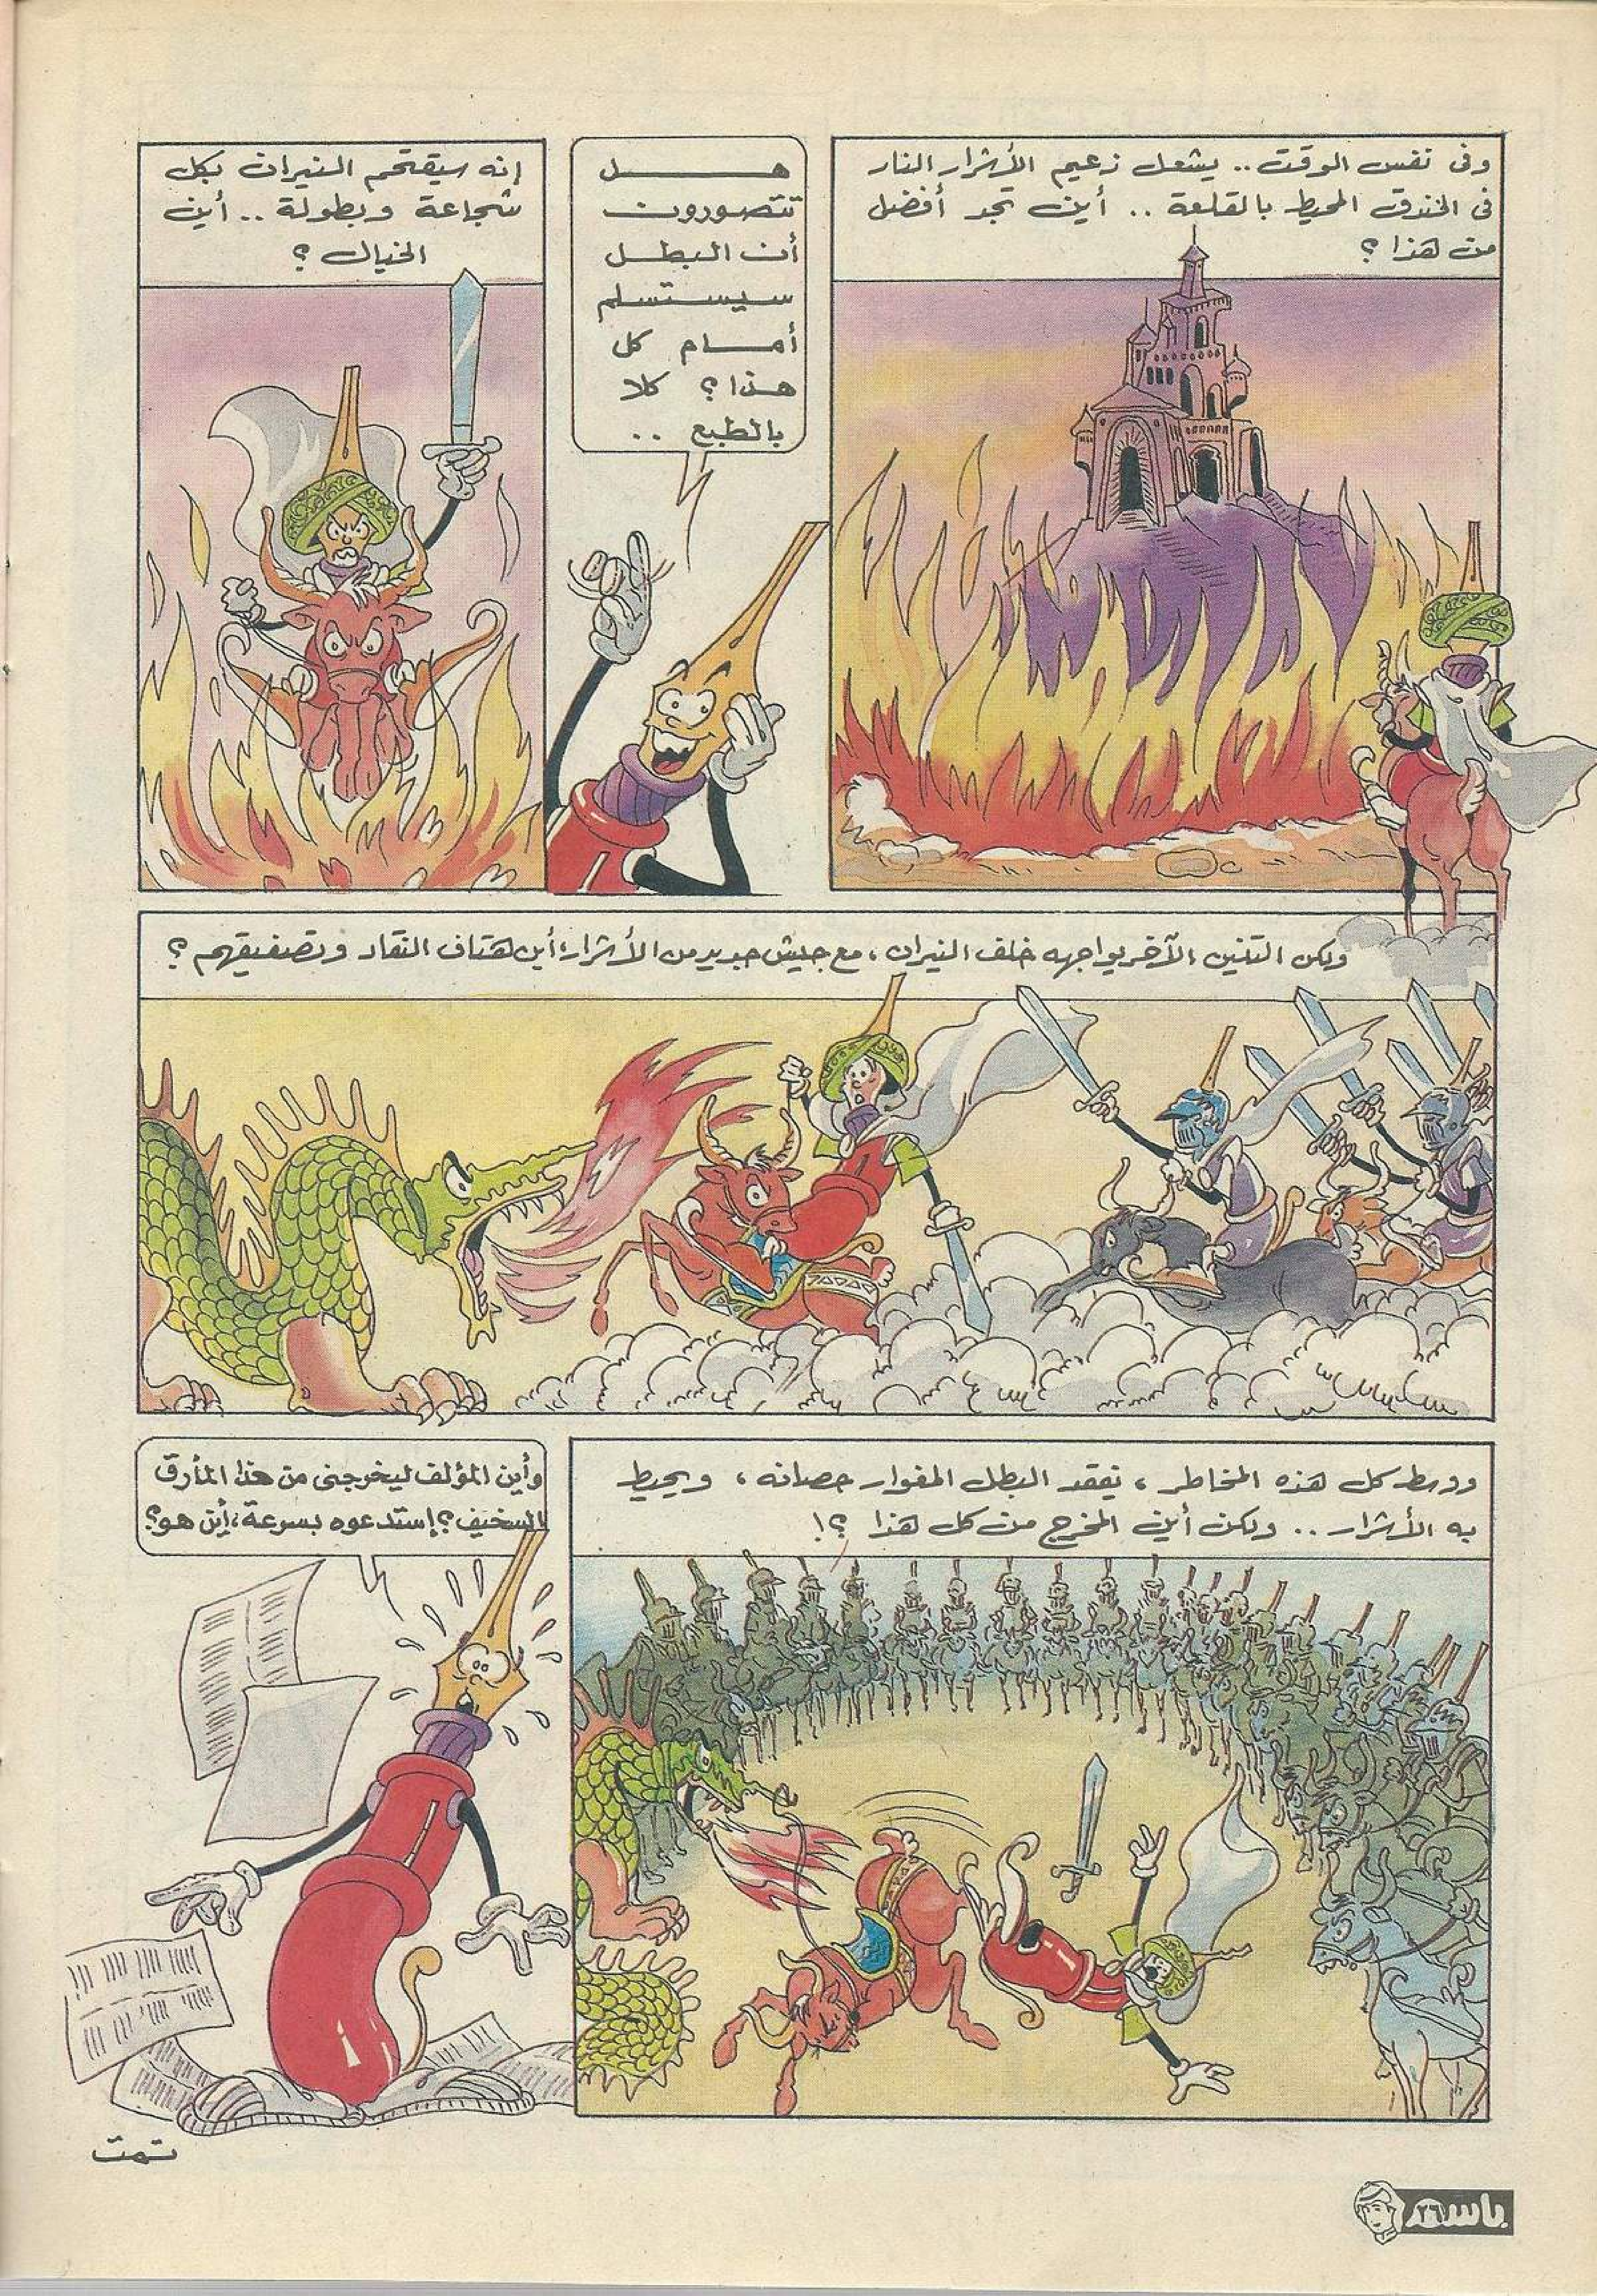 وفى نفس الوقت .. يشعل زعيم الأشرار النار
فى الخندق المحيط بالقلعة .. أين تجد أفضل
من هذا ؟
هـــل
تتصورون
أن البطل
سيستسلم
أمام كل
هذا ؟ كلا
بالطبع ..
إنه سيقتحم النيران بكل
شجاعة وبطولة .. أين
الخيال ؟
ولكن التنين الآخر يواجهه خلف النيران ، مع جيش جديد من الأشرار ، أين هتاف النقاد وتصفيقهم ؟
ووسط كل هذه المخاطر ، يفقد البطل المغوار حصانه ، ويحيط
به الأشرار .. ولكن أين المخرج من كل هذا ؟!
وأين المؤلف ليخرجنى من هذا المأزق
السخيف ؟ إستدعوه بسرعة ، أين هو ؟
تمت
باسم
٢٦